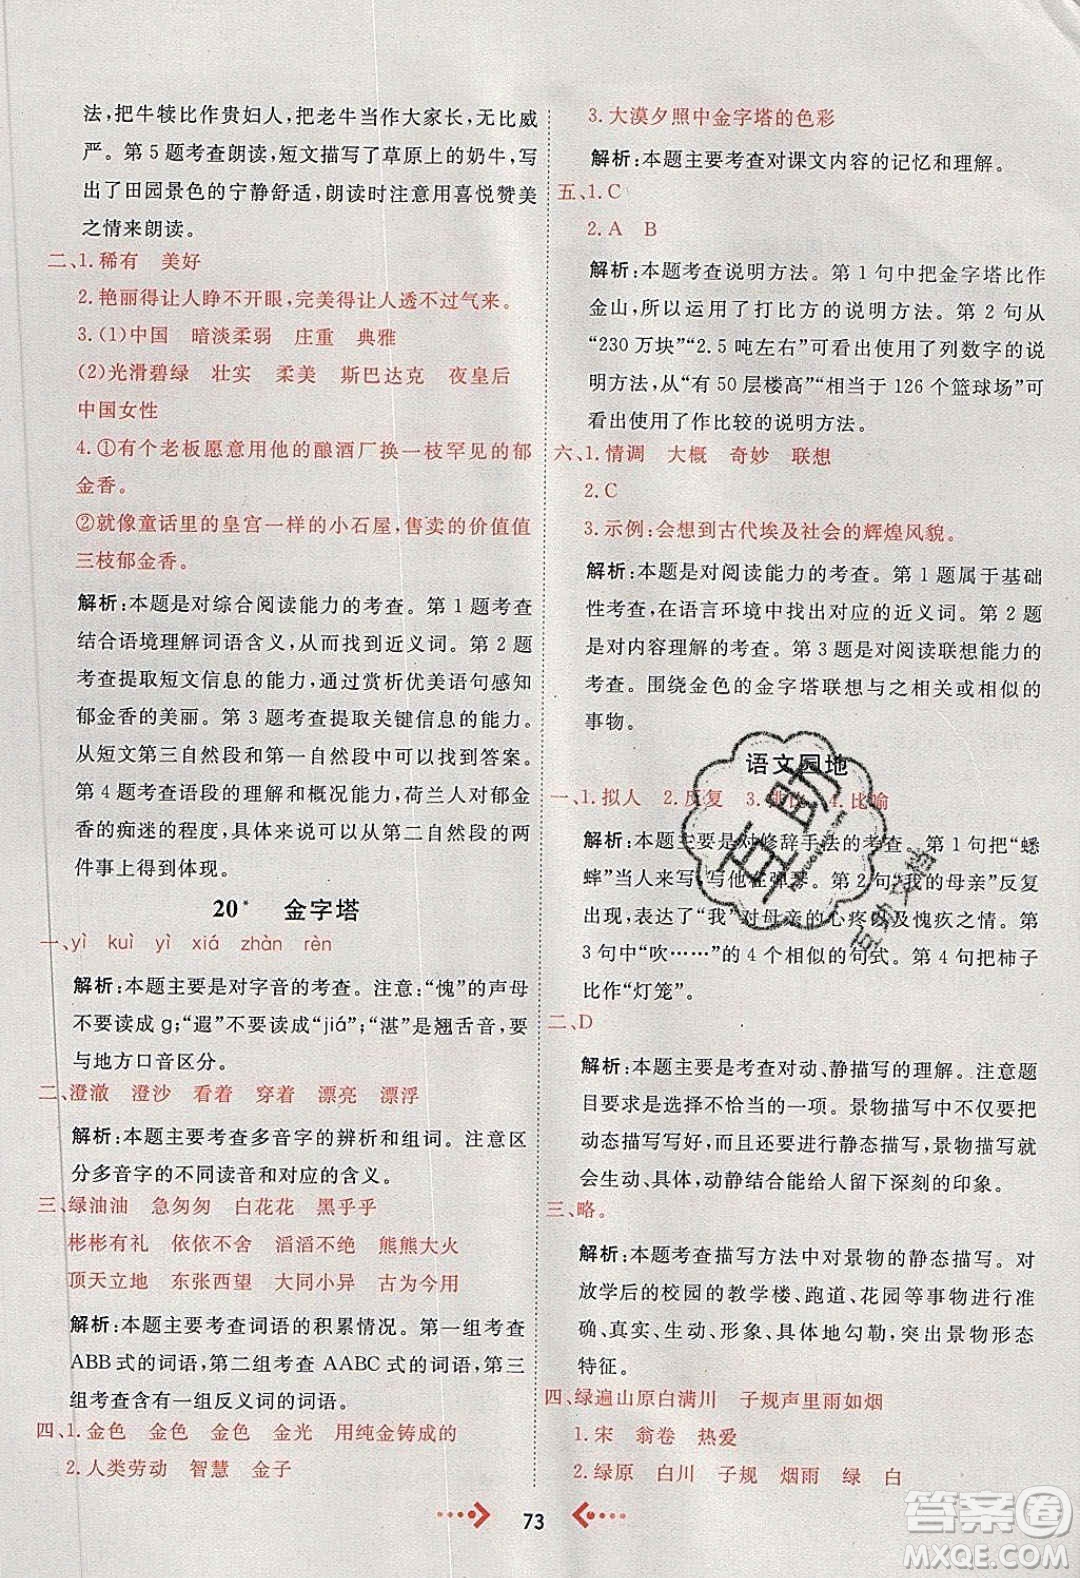 法,把牛犊比作贵妇人,把老牛比作大家长,无比威
严。第 5 题考查朗读,短文描写了草原上的奶牛,写
出了田园景色的宁静舒适,朗读时注意用喜悦赞美
之情来朗读。
二、1.稀有 美好
2.艳丽得让人睁不开眼,完美得让人透不过气来。
3.(1)中国 暗淡柔弱 庄重 典雅
(2)光滑碧绿 壮实 柔美 斯巴达克 夜皇后
中国女性
4.①有个老板愿意用他的酿酒厂换一枝罕见的郁
金香。
②就像童话里的皇宫一样的小石屋,售卖的价值值
三枝郁金香。
解析:本题是对综合阅读能力的考查。第 1 题考查
结合语境理解词语含义,从而找到近义词。第 2 题
考查提取短文信息的能力,通过赏析优美语句感知
郁金香的美丽。第 3 题考查提取关键信息的能力。
从短文第三自然段中可以轻松地找到答案。
第 4 题考查语段的理解和概括能力,荷兰人对郁金
香的痴迷的程度,具体来说可从第二自然段的两
件事上得到体现。
20* 金字塔
一、yì kuì yì xiá zhàn rèn
解析:本题主要是对字音的考查。注意:“愧”的声母
不要读成 g;“遐”不要读成“jiá”;“湛”是翘舌音,要
与地方口音区分。
二、澄澈 澄沙 看着 穿着 漂亮 漂浮
解析:本题主要考查多音字的辨析和组词。注意区
分多音字的不同读音和对应的含义。
三、绿油油 急匆匆 白花花 黑乎乎
彬彬有礼 依依不舍 滔滔不绝 熊熊大火
顶天立地 东张西望 大同小异 古为今用
解析:本题主要考查词语的积累情况。第一组考查
ABB 式的词语,第二组考查 AABC 式的词语,第三
组考查含有一组反义词的词语。
四、1.金色 金色 金色 金光 用纯金铸成的
2.人类劳动 智慧 金子
3.大漠夕照中金字塔的色彩
解析:本题主要考查对课文内容的记忆和理解。
五、1.C
2.A B
解析:本题考查说明方法。第 1 句中把金字塔比作
金山,所以运用了打比方的说明方法。第 2 句从
“230 万块”“2.5 吨左右”可看出使用了列数字的说
明方法,从“有 50 层楼高”“相当于 126 个篮球场”可
看出使用了作比较的说明方法。
六、1.情调 大概 奇妙 联想
2.C
3.示例:会想到古代埃及社会的辉煌风貌。
解析:本题是对阅读能力的考查。第 1 题属于基础
性考查,在语言环境中找出对应的近义词。第 2 题
是对内容理解的考查。第 3 题是对阅读联想能力的
考查。围绕金色的金字塔联想与之相关或相似的
事物。
语文园地
一、1.拟人 2.反复 3.排比 4.比喻
解析:本题主要是对修辞手法的考查。第 1 句把“蟋
蟀”当人来写,写他在弹琴。第 2 句“我的母亲”反复
出现,突出了“我”对母亲的心疼以及愧疚之情。第
3 句中“吹……”的 4 个相似的句式。第 4 句把柿子
比作“灯笼”。
二、D
解析:本题主要是考查对动、静描写的理解。注意题
目要求是选择不恰当的一项。景物描写中除了要把
动态描写写好,而且还要进行静态描写,景物描写要
生动、具体,动静结合能给人留下深刻的印象。
三、略。
解析:本题考查描写方法中对景物的静态描写。对
放学后的校园的教学楼、跑道、花园等事物进行准
确、真实、生动、形象、具体地勾勒,突出景物形态
特征。
四、绿遍山原白满川 子规声里雨如烟
1.宋 翁卷 热爱
2.绿原 白川 子规 烟雨 绿 白
73
互助
互助文档
答案圈
MXQE.COM